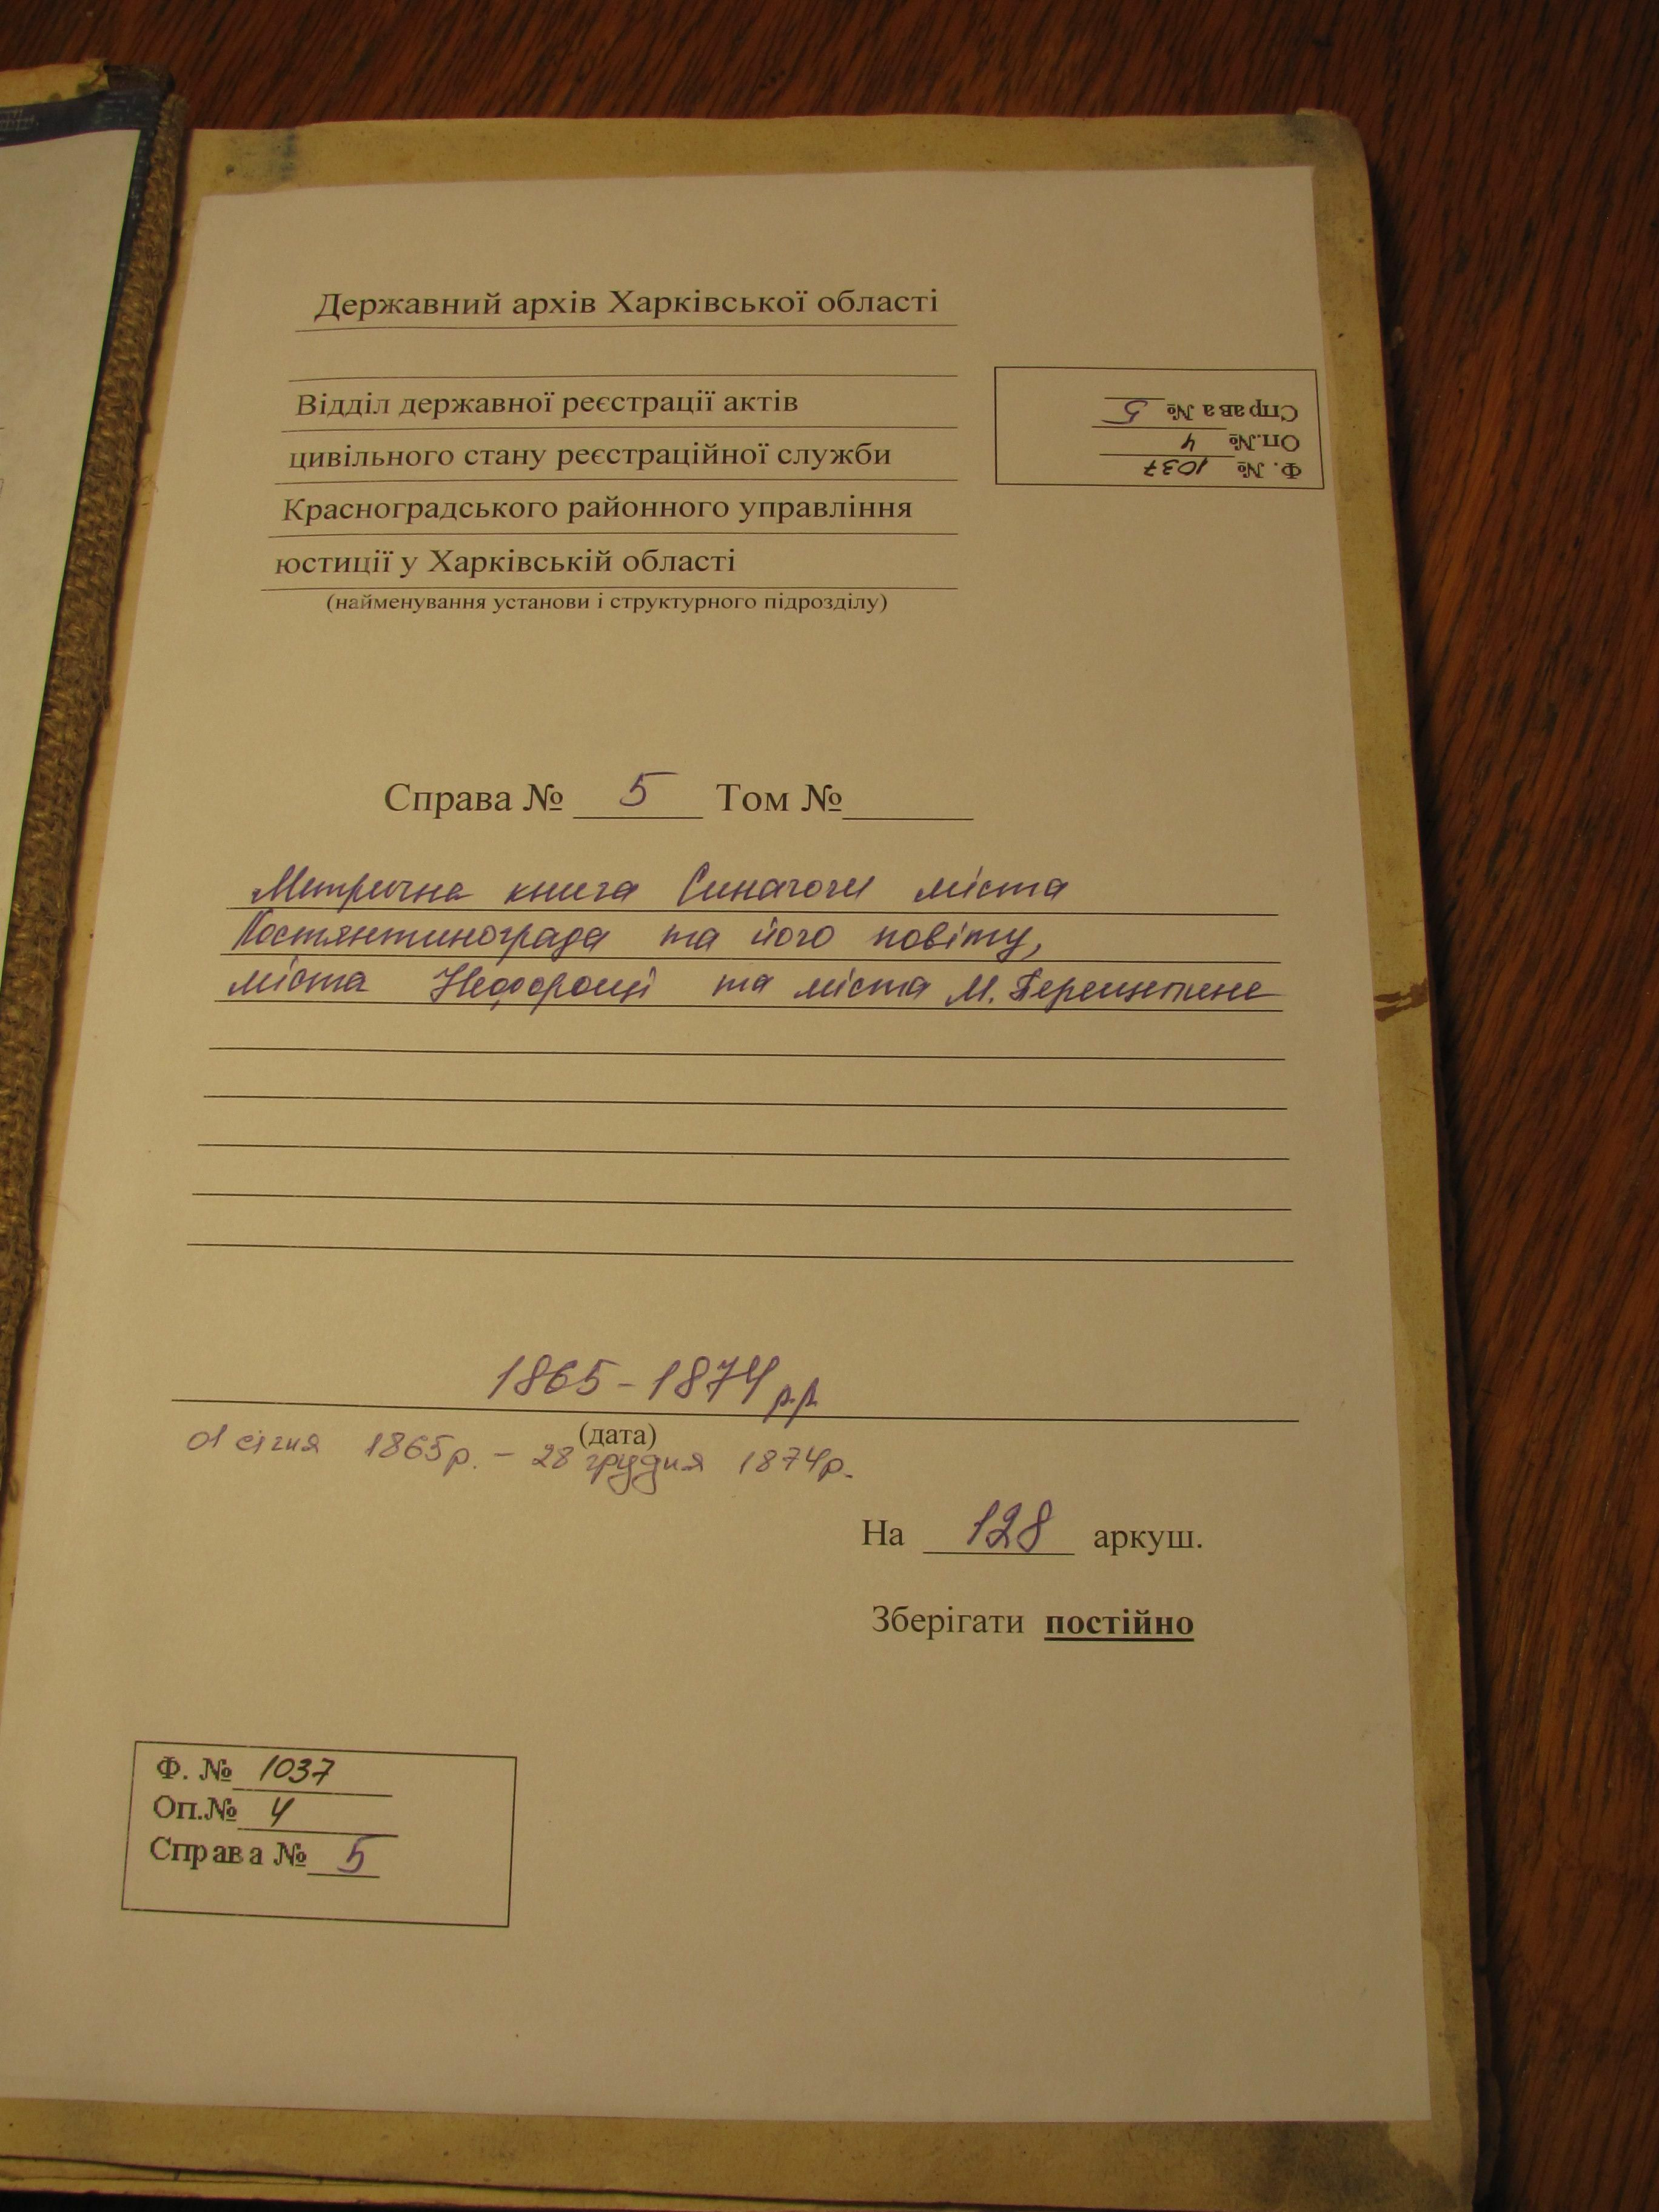 Державний архів Харківської області
Відділ державної реєстрації актів
цивільного стану реєстраційної служби
Красноградського районного управління
юстиції у Харківській області
(найменування установи і структурного підрозділу)
Ф. № 1037
Оп.№ 4
Справа № 5
Справа № 5 Том №
Метрична книга Синагоги міста
Костянтинограда та його повіту,
міста Нефорощі та міста М. Перещепине
1865-1874 р.р.
(дата)
01 січня 1865р. - 28 грудня 1874р.
На 128 аркуш.
Зберігати постійно
Ф. № 1037
Оп.№ 4
Справа № 5